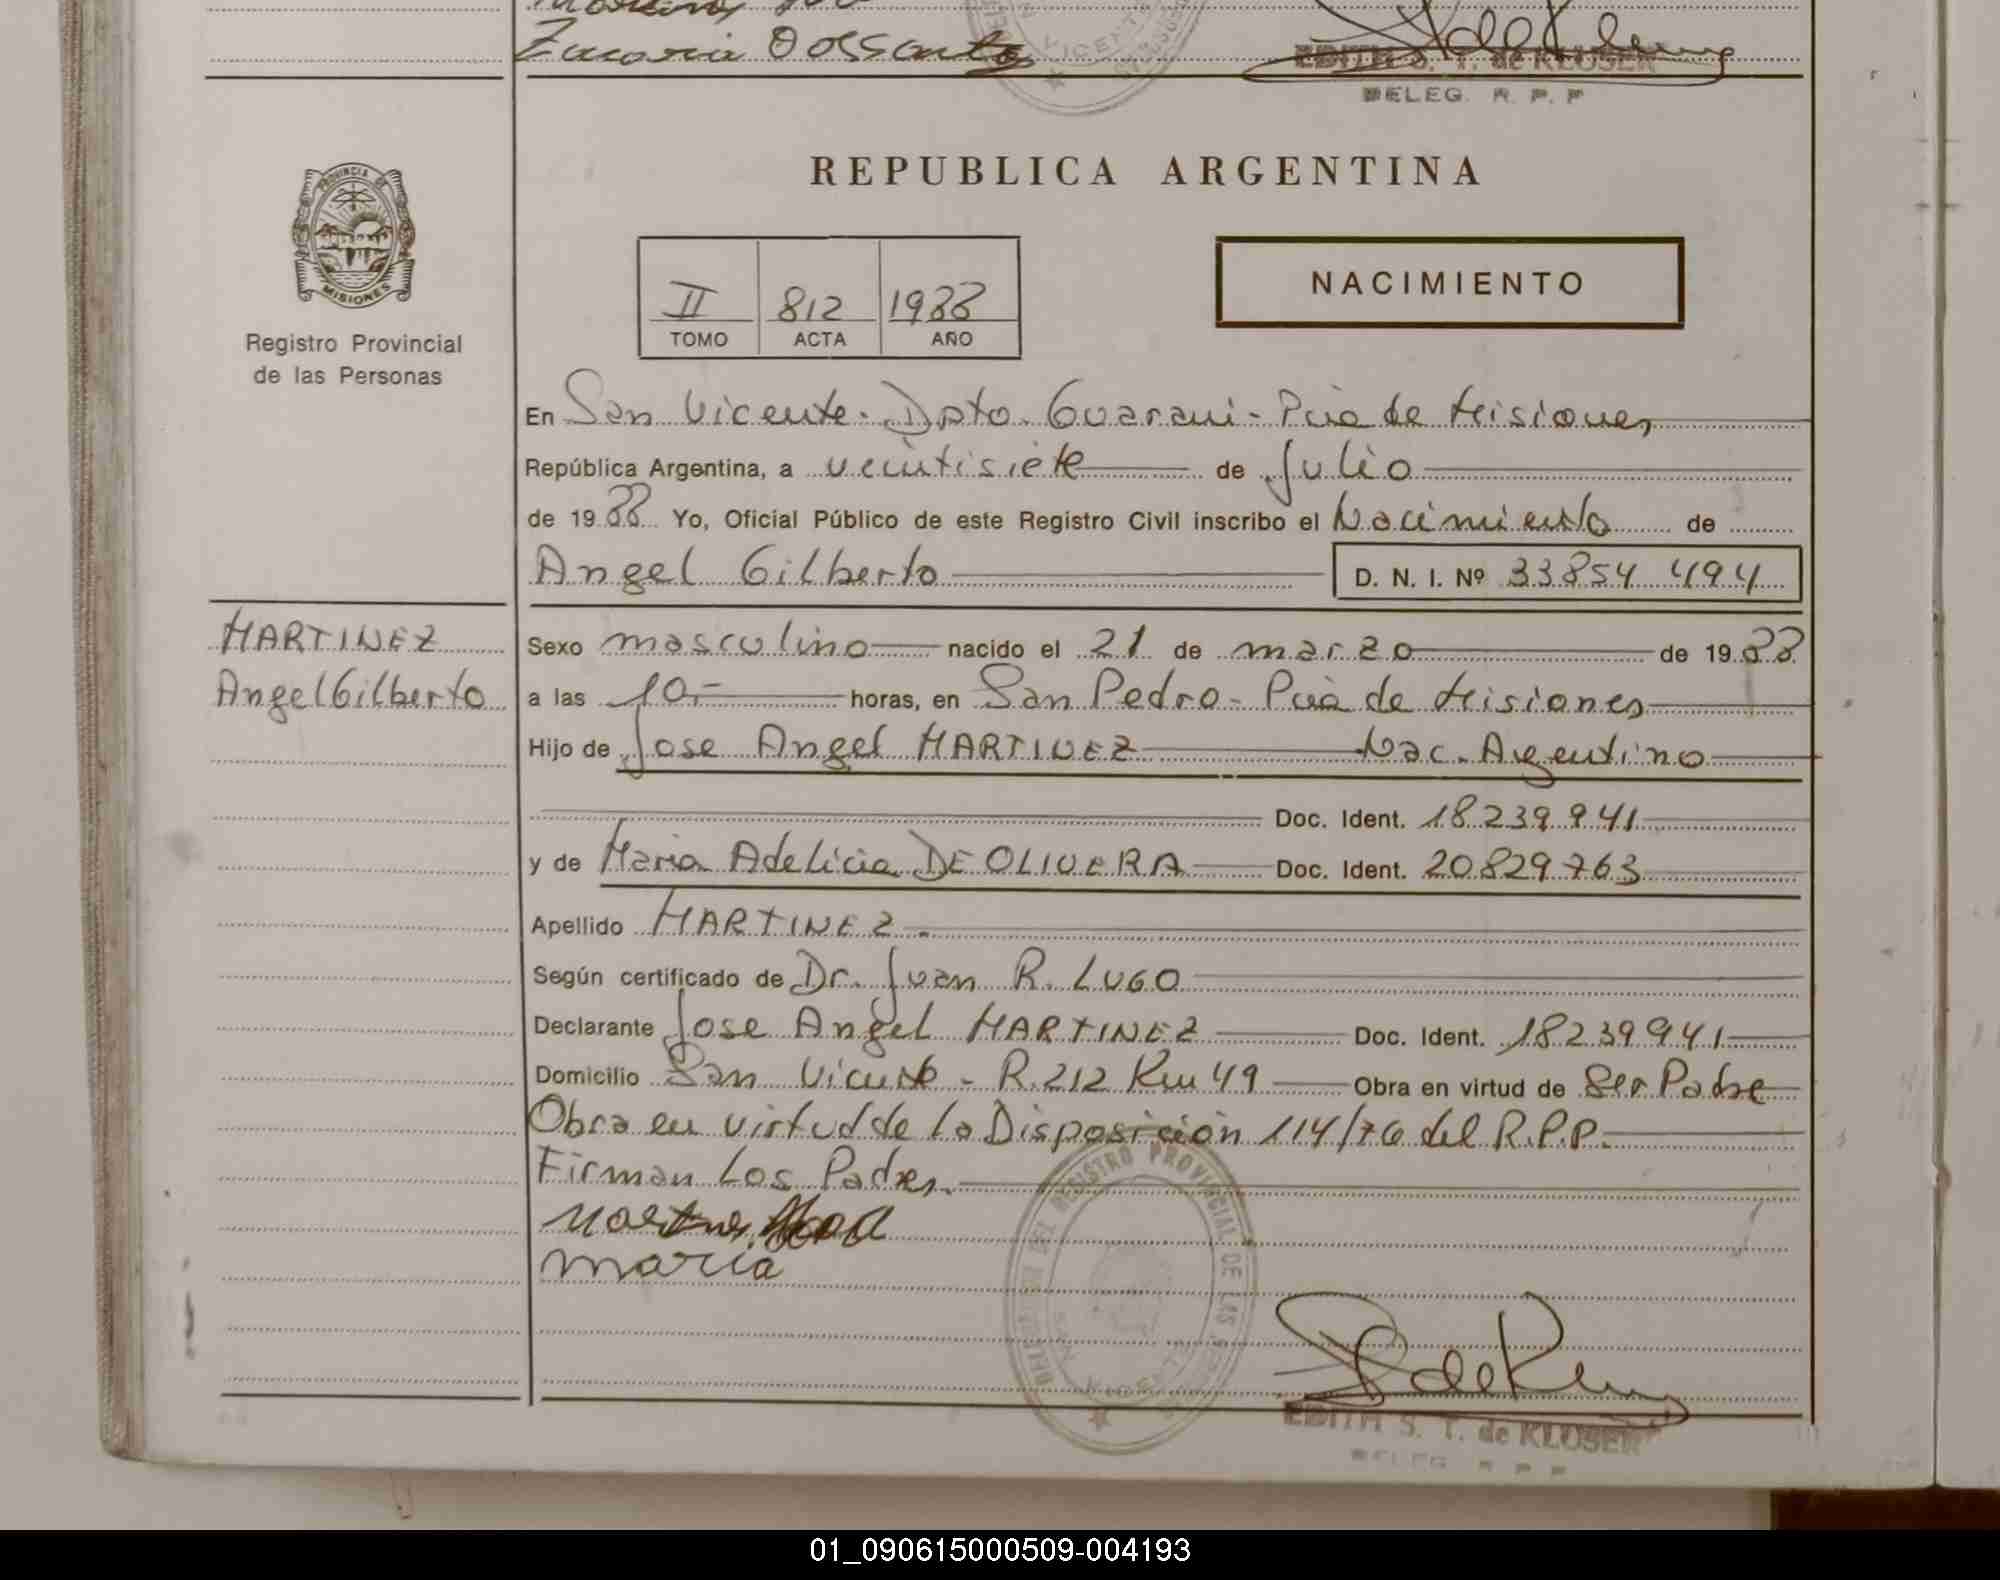 Zacaria Dossanto
EDITH S. T. de KLUSER
DELEG. R. P. P
REPUBLICA ARGENTINA
PROVINCIA DE
MISIONES
Registro Provincial
de las Personas
II 812 1988
TOMO ACTA AÑO
NACIMIENTO
En San Vicente - Dpto. Guarani - Pcia de Misiones
República Argentina, a veintisiete de Julio
de 1988 Yo, Oficial Público de este Registro Civil inscribo el Nacimiento de
Angel Gilberto D. N. I. Nº 33854 494
MARTINEZ
Angel Gilberto
Sexo masculino nacido el 21 de marzo de 1988
a las 10.- horas, en San Pedro - Pcia de Misiones
Hijo de Jose Angel MARTINEZ Nac. Argentino
Doc. Ident. 18 239 941
y de Maria Adelicia DE OLIVERA Doc. Ident. 20829763
Apellido MARTINEZ.
Según certificado de Dr. Juan R. LUGO
Declarante Jose Angel MARTINEZ Doc. Ident. 18239941
Domicilio San Vicente - R.212 Km 49 Obra en virtud de Ser Padre
Obra en virtud de la Disposición 114/76 del R.P.P.
Firman Los Padres.
maria
REGISTRO PROVINCIAL DE LAS
EDITH S. T. de KLUSER
DELEG R P P
01_090615000509-004193